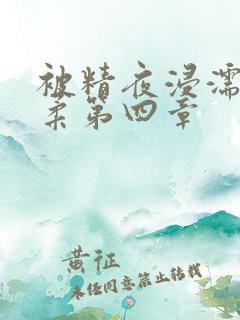 被精夜浸濡
柔第四章
黄征
未经同意禁止转载